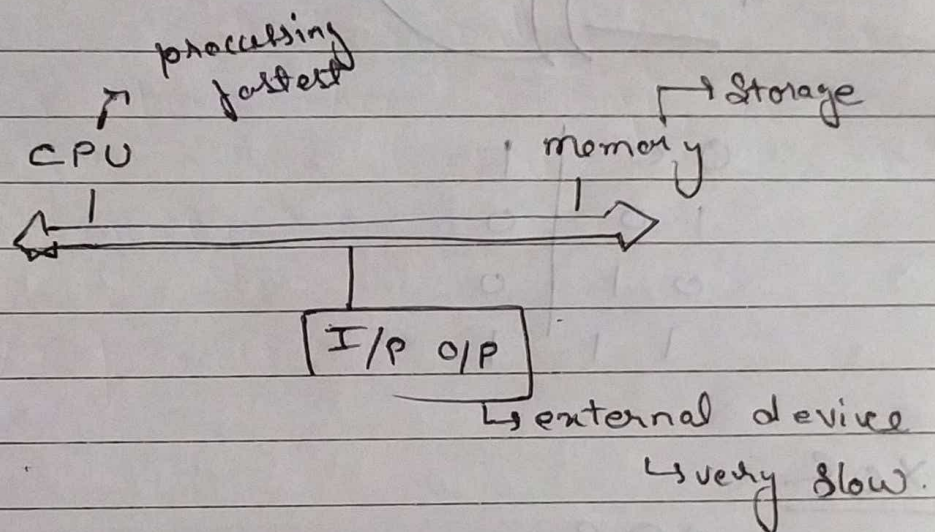 processing
fastest
→ Storage
CPU
memory
I/P O/P
↳ external device
↳ very slow.